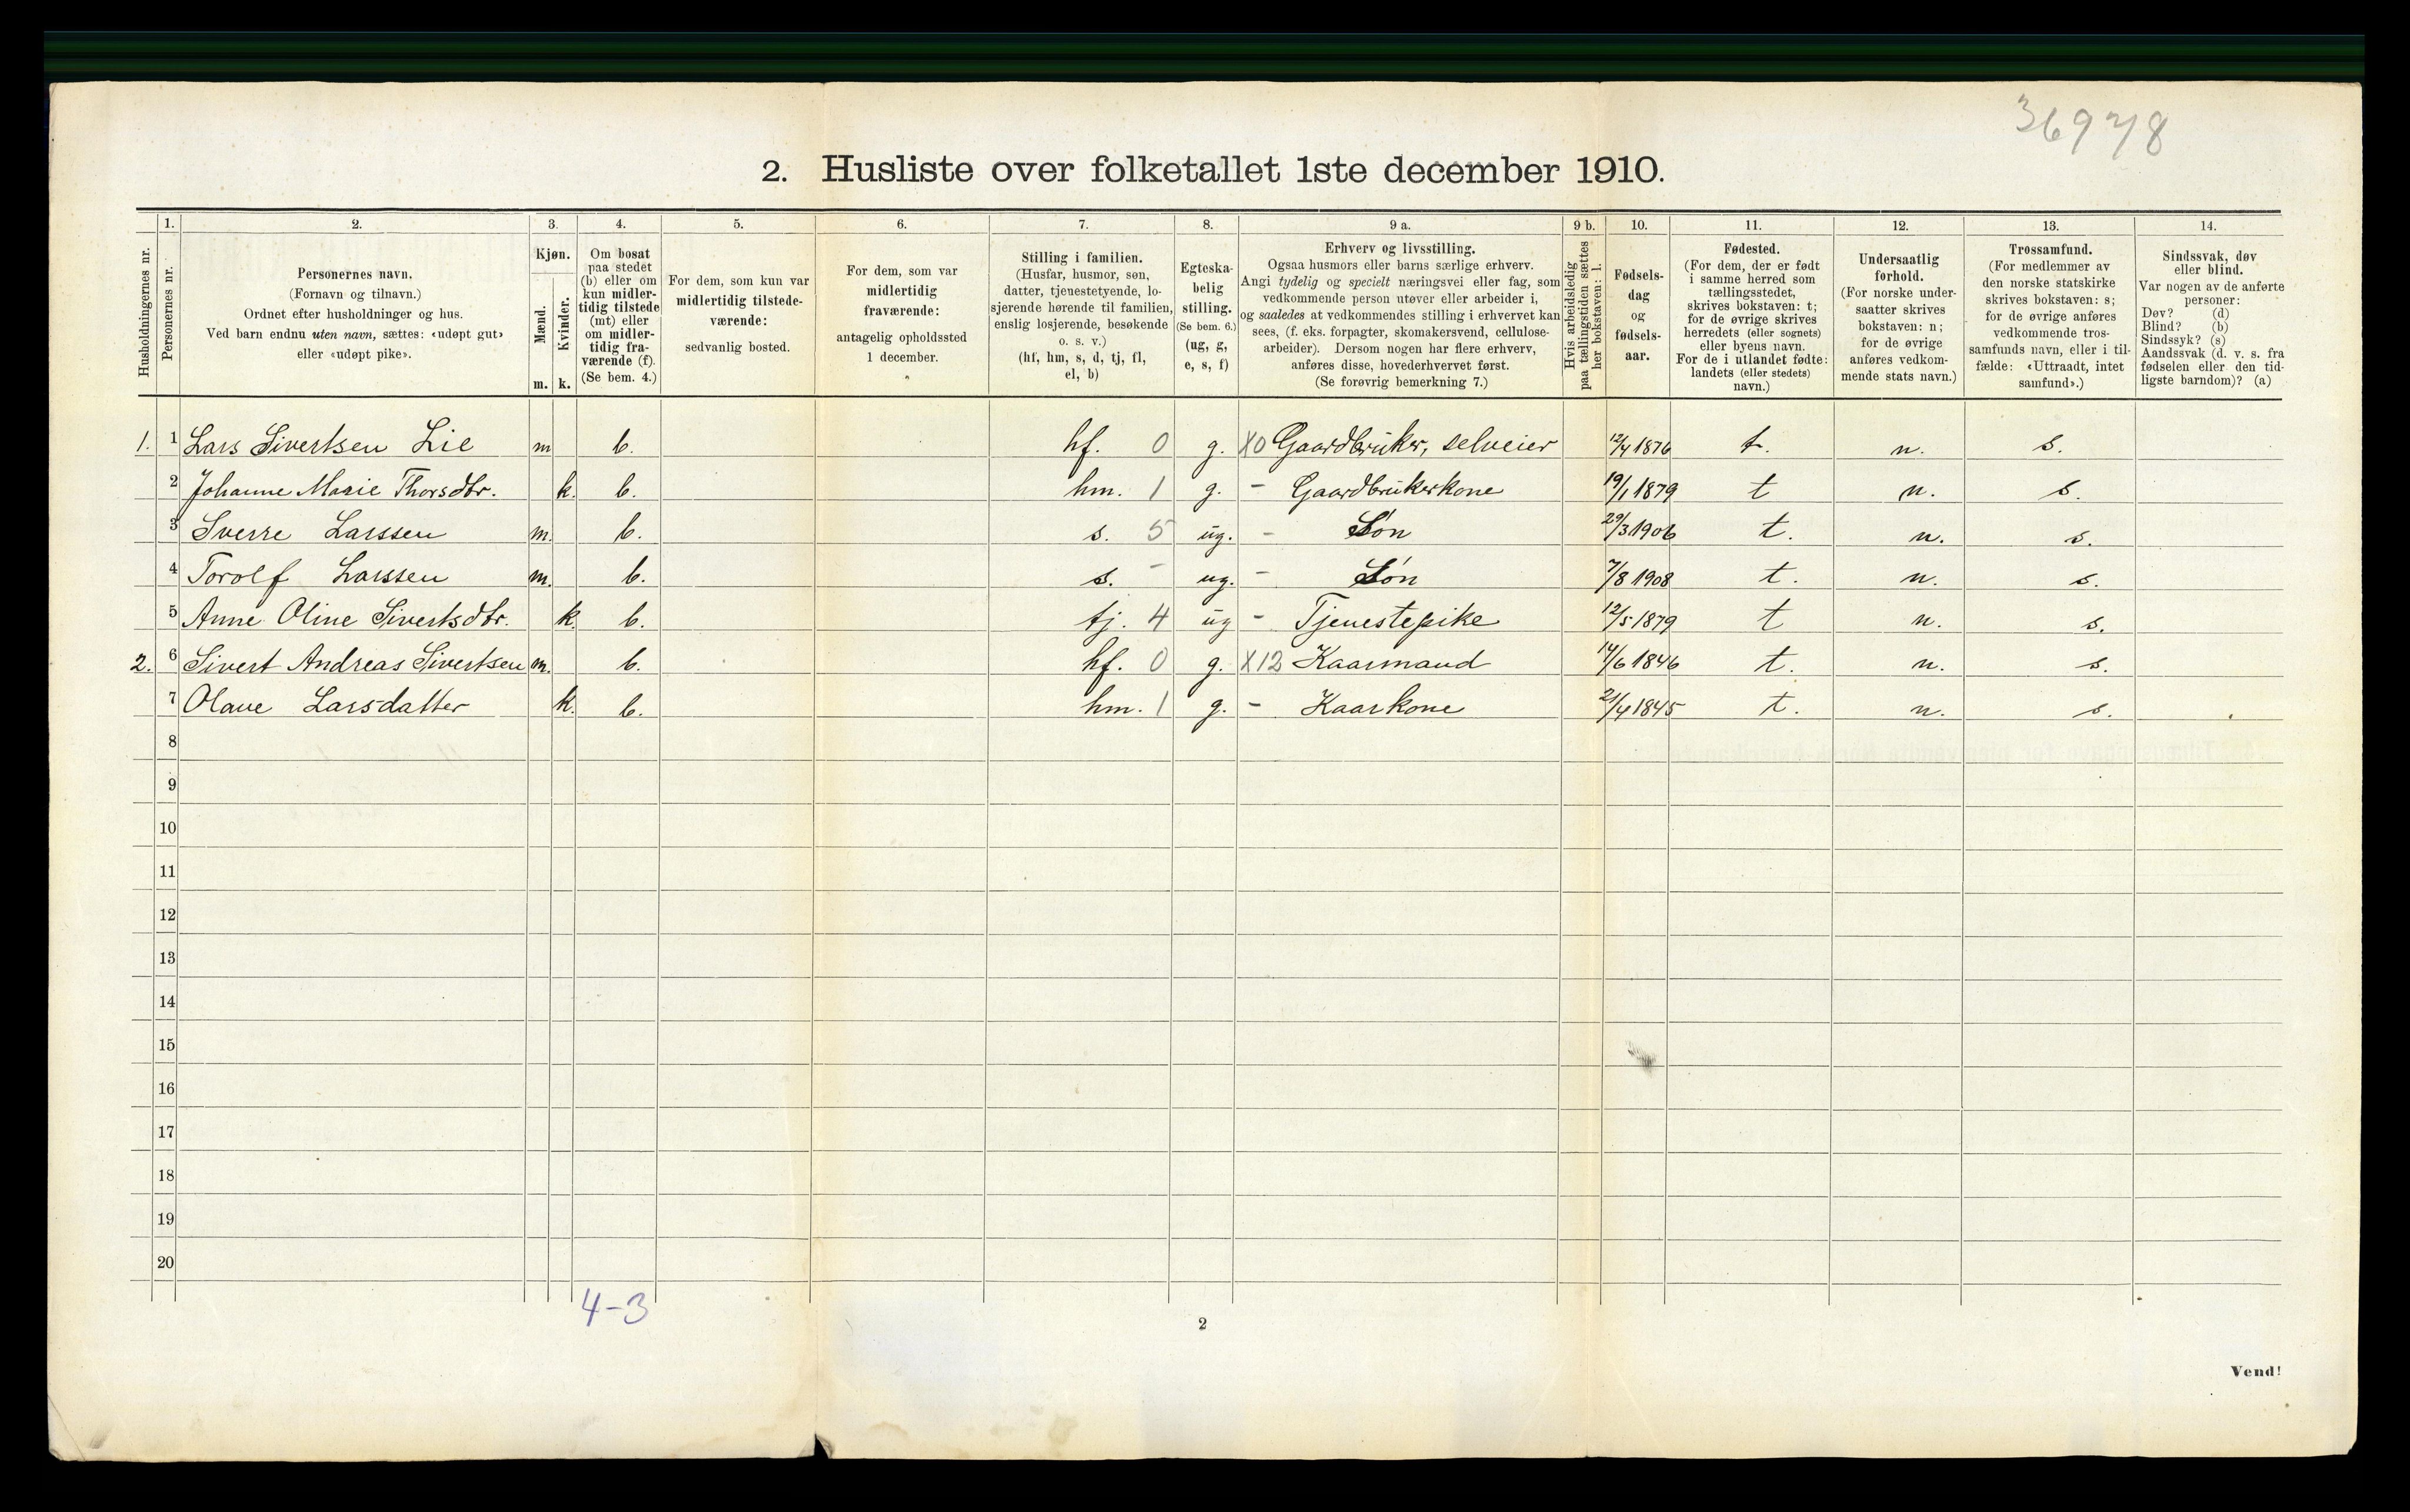 36978
2. Husliste over folketallet 1ste december 1910.
Husholdningernes nr.
1.
Personernes nr.
2.
Personernes navn.
(Fornavn og tilnavn.)
Ordnet efter husholdninger og hus.
Ved barn endnu uten navn, sættes: «udøpt gut»
eller «udøpt pike».
3.
Kjøn.
Mænd.
Kvinder.
m. k.
4.
Om bosat
paa stedet
(b) eller om
kun midler-
tidig tilstede
(mt) eller
om midler-
tidig fra-
værende (f).
(Se bem. 4.)
5.
For dem, som kun var
midlertidig tilstede-
værende:
sedvanlig bosted.
6.
For dem, som var
midlertidig
fraværende:
antagelig opholdssted
1 december.
7.
Stilling i familien.
(Husfar, husmor, søn,
datter, tjenestetyende, lo-
sjerende hørende til familien,
enslig losjerende, besøkende
o. s. v.)
(hf, hm, s, d, tj, fl,
el, b)
8.
Egteska-
belig
stilling.
(Se bem. 6.)
(ug, g,
e, s, f)
9 a.
Erhverv og livsstilling.
Ogsaa husmors eller barns særlige erhverv.
Angi tydelig og specielt næringsvei eller fag, som
vedkommende person utøver eller arbeider i,
og saaledes at vedkommendes stilling i erhvervet kan
sees, (f. eks. forpagter, skomakersvend, cellulose-
arbeider). Dersom nogen har flere erhverv,
anføres disse, hovederhvervet først.
(Se forøvrig bemerkning 7.)
9 b.
Hvis arbeidsledig
paa tællingstiden sættes
her bokstaven: l.
10.
Fødsels-
dag
og
fødsels-
aar.
11.
Fødested.
(For dem, der er født
i samme herred som
tællingsstedet,
skrives bokstaven: t;
for de øvrige skrives
herredets (eller sognets)
eller byens navn.
For de i utlandet fødte:
landets (eller stedets)
navn.)
12.
Undersaatlig
forhold.
(For norske under-
saatter skrives
bokstaven: n;
for de øvrige
anføres vedkom-
mende stats navn.)
13.
Trossamfund.
(For medlemmer av
den norske statskirke
skrives bokstaven: s;
for de øvrige anføres
vedkommende tros-
samfunds navn, eller i til-
fælde: «Uttraadt, intet
samfund».)
14.
Sindssvak, døv
eller blind.
Var nogen av de anførte
personer:
Døv? (d)
Blind? (b)
Sindssyk? (s)
Aandssvak (d. v. s. fra
fødselen eller den tid-
ligste barndom)? (a)
1. 1 Lars Sivertsen Lie m b. hf. 0 g. X0 Gaardbruker, selveier 12/4 1876 t. n. s.
2 Johanne Marie Thorsdtr. k. b. hm. 1 g. - Gaardbrukerkone 19/1 1879 t n. s.
3 Sverre Larssen m. b. s. 5 ug. - Søn 29/3 1906 t. n. s.
4 Torolf Larssen m. b. s. - ug. - Søn 7/8 1908 t. n. s.
5 Anne Oline Sivertsdtr. k. b. tj. 4 ug - Tjenestepike 12/5 1879 t n. s.
2. 6 Sivert Andreas Sivertsen m. b. hf. 0 g. X12 Kaarmand 14/6 1846 t. n. s.
7 Olave Larsdatter k. b. hm. 1 g. - Kaarkone 21/4 1845 t. n. s.
8
9
10
11
12
13
14
15
16
17
18
19
20
4-3
2
Vend!